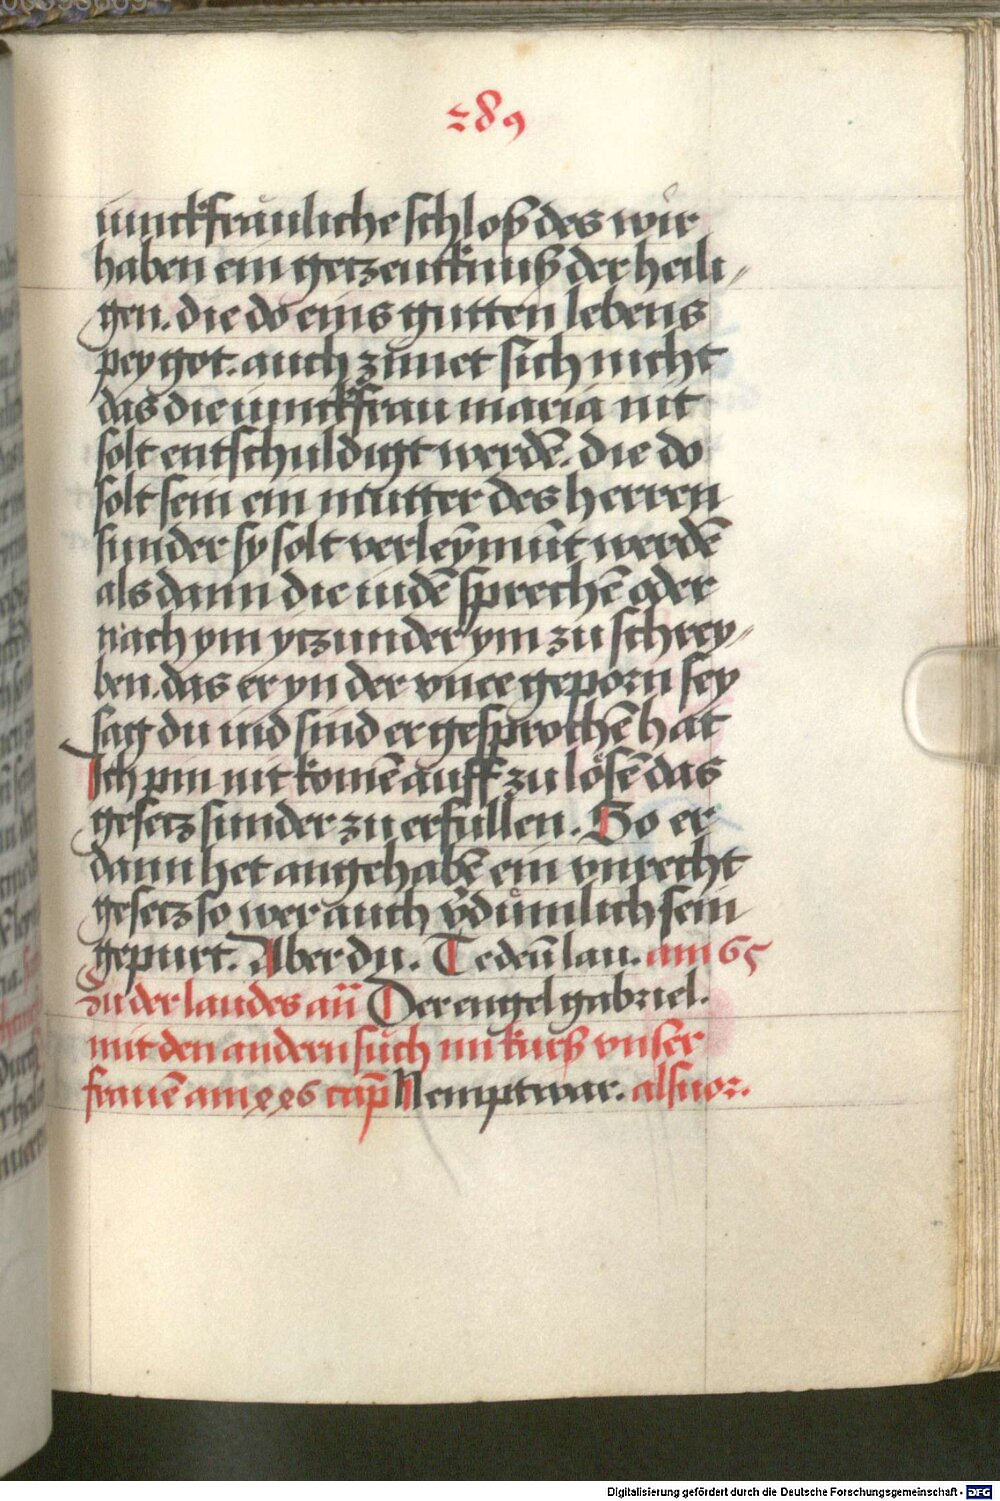 289
iunckfrauliche schloß des wir
haben ein getzeucknuß der heili
gen. die do eins gutten lebens
pey got. auch zimet sich nicht
das die iunckfrau maria nit
solt entschuldigt werdē. die do
solt sein ein mutter des herren
sunder sy solt verleymūt werdē
als dann die iudē sprechē oder
nach ym ytzunder ym zu schrey
ben. das er yn der vnee geporn sey
sag du iud sind er gesprochē hat
Ich pin nit komē auff zu lösē das
gesetz sunder zu erfullen. So er
dann het angehabē ein vnrecht
gesetz so wer auch v̄dūmlich sein
gepurt. Aber du. Tedeū lau. am 65
Zu der laudes añ Der engel gabriel.
mit den andern such im kurß vnser
frauē am 226 cap̄ Nempt war. als vor.
Digitalisierung gefördert durch die Deutsche Forschungsgemeinschaft - DFG